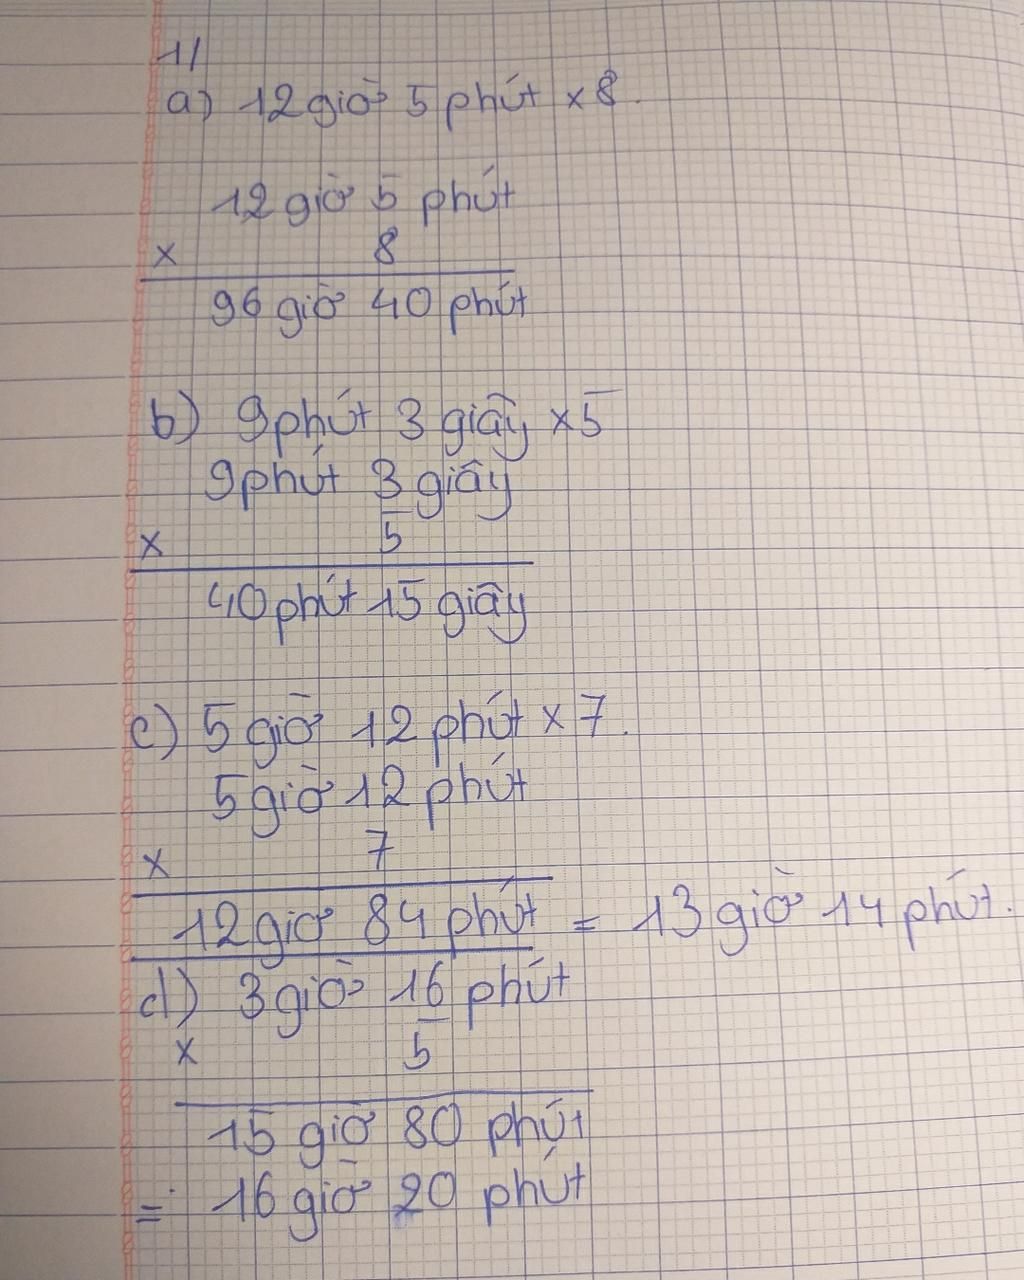 1/
a) 12 giờ 5 phút x 8.
12 giờ 5 phút
x 8
96 giờ 40 phút
b) 9 phút 3 giây x 5
9 phút 3 giây
x 5
40 phút 15 giây
c) 5 giờ 12 phút x 7.
5 giờ 12 phút
x 7
12 giờ 84 phút = 13 giờ 14 phút.
d) 3 giờ 16 phút
x 5
15 giờ 80 phút
= 16 giờ 20 phút